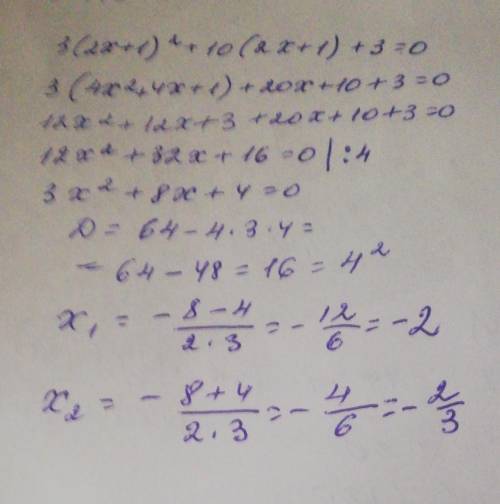 3(2x+1)²+10(2x+1)+3=0
3(4x²+4x+1)+20x+10+3=0
12x²+12x+3+20x+10+3=0
12x²+32x+16=0|:4
3x²+8x+4=0
D=64-4·3·4=
=64-48=16=4²
x₁ = -(8-4)/(2·3) = -12/6 = -2
x₂ = -(8+4)/(2·3) = -4/6 = -2/3